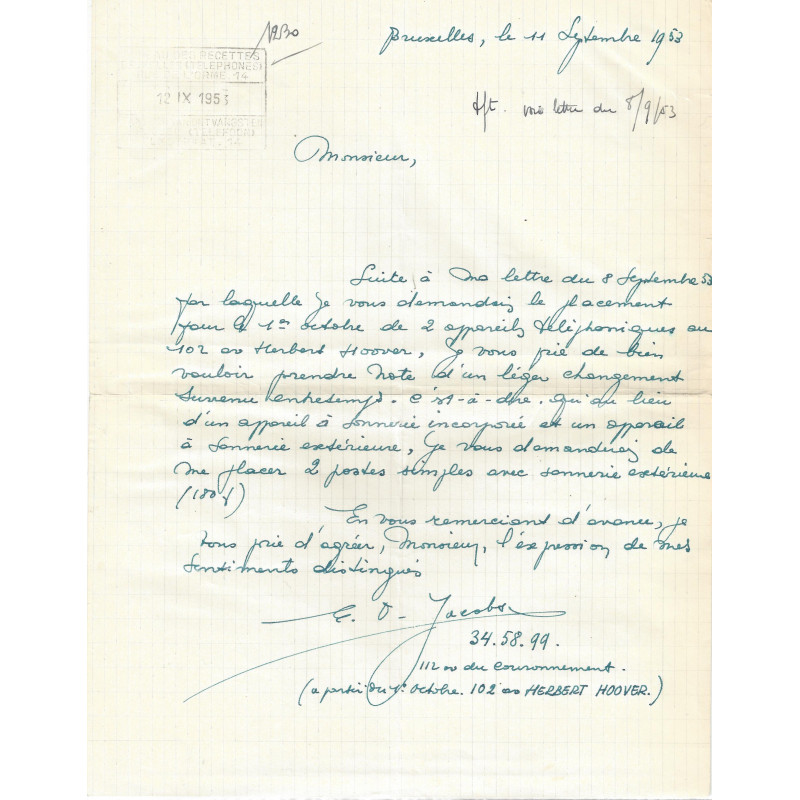 1230
Bruxelles, le 11 Septembre 1953
RECETTES
(TELEPHONES)
L'ORME. 14
12 IX 1953
(TELEFOON)
14
voir lettre du 8/9/53
Monsieur,
Suite à ma lettre du 8 Septembre 53
par laquelle je vous demandais le placement
pour le 1er octobre de 2 appareils téléphoniques au
102 av Herbert Hoover, je vous prie de bien
vouloir prendre note d'un léger changement
survenu entretemps. C'est-à-dire. qu'au lieu
d'un appareil à sonnerie incorporée et un appareil
à sonnerie extérieure, je vous demanderais de
me placer 2 postes simples avec sonnerie extérieure
En vous remerciant d'avance, je
vous prie d'agréer, Monsieur, l'expression de mes
sentiments distingués
Jacobs
34.58.99.
112 av du Couronnement.
(a partir du 1r Octobre. 102 av HERBERT HOOVER.)